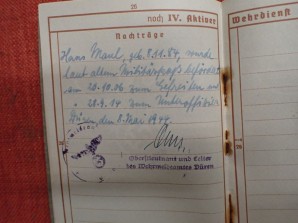 26
noch IV. Aktiver
Wehrdienst
Nachträge
Hans Maul, geb. 8.11.84, wurde
laut altem Militärpaß befördert
am 20.10.06 zum Gefreiten und
" 20.9.14 zum Unteroffizier
Düren, den 8. Mai 1944.
Oberstleutnant und Leiter
des Wehrmeldeamtes Düren